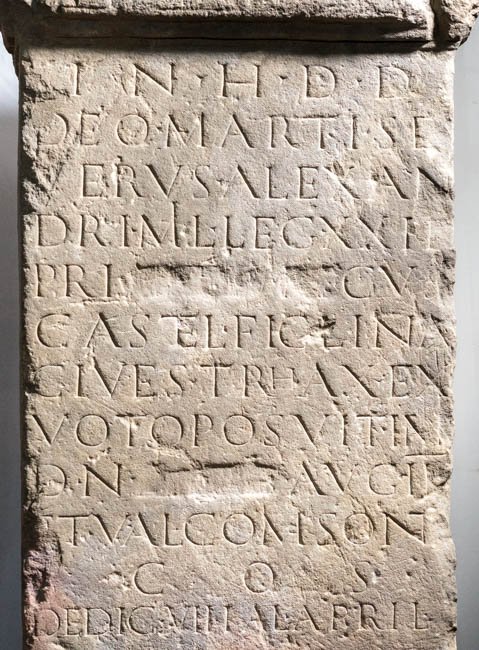 I N · H · D · D
DEO·MARTI SE
ERVS·ALEXAN
DRI·MIL·LEG·XXII
PRI CV
CASTEL·FICLINA
CIVES·TRHAX·EX
VOTO POSVIT IM
D·N AVG II
ET VAL COMASON
C O S
DEDIC·VIII·KAL APRIL